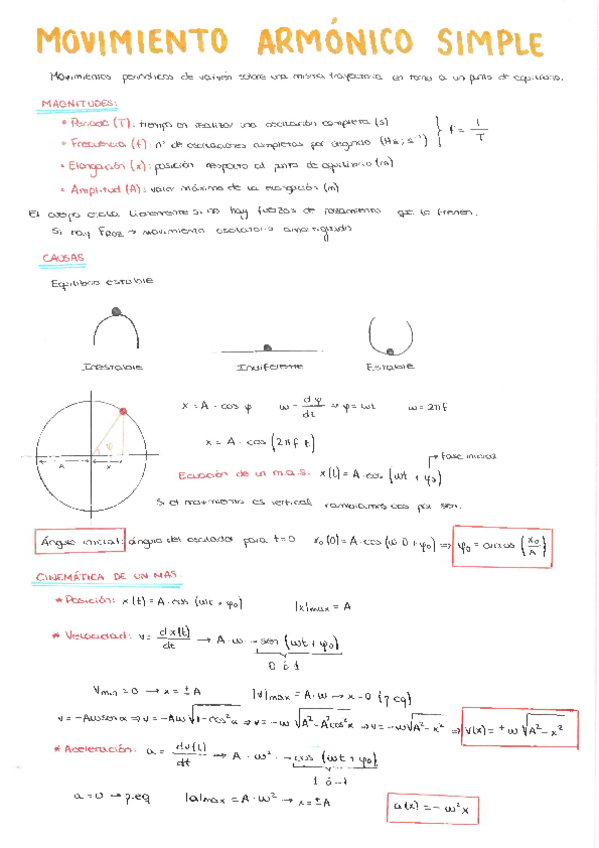 MOVIMIENTO ARMÓNICO SIMPLE
Movimientos periódicos de vaivén sobre una misma trayectoria en torno a un punto de equilibrio.
MAGNITUDES:
• Periodo (T): tiempo en realizar una oscilación completa (s)
• Frecuencia (f): nº de oscilaciones completas por segundo (Hz; s⁻¹) } f = 1/T
• Elongación (x): posición respecto al punto de equilibrio (m)
• Amplitud (A): valor máximo de la elongación (m)
El cuerpo oscila libremente si no hay fuerzas de rozamiento que lo frenen.
Si hay FROZ → movimiento oscilatorio amortiguado
CAUSAS
Equilibrio estable
Inestable Indiferente Estable
x = A · cos φ w = dφ/dt ⇒ φ = wt w = 2πf
x = A · cos (2πf t)
fase inicial
Ecuación de un m.a.s: x(t) = A · cos (wt + φ₀)
Si el movimiento es vertical cambiamos cos por sen.
A x φ
Ángulo inicial: ángulo del oscilador para t=0 x₀(0) = A · cos (w·0 + φ₀) ⇒ φ₀ = arccos (x₀/A)
CINEMÁTICA DE UN MAS:
* Posición: x(t) = A · cos (wt + φ₀) |x|max = A
* Velocidad: v = dx(t)/dt → A · w · -sen (wt + φ₀)
0 ó 1
Vmin = 0 → x = ± A |v|max = A · w → x = 0 (p eq)
v = -Awsen α ⇒ v = -Aw √1-cos²α ⇒ v = -w √A²-A²cos²α ⇒ v = -w √A²-x² ⇒ v(x) = ± w √A²-x²
* Aceleración: a = dv(t)/dt → A · w² · -cos (wt + φ₀)
1 ó -1
a = 0 → p.eq |a|max = A · w² → x = ±A a(x) = - w²x